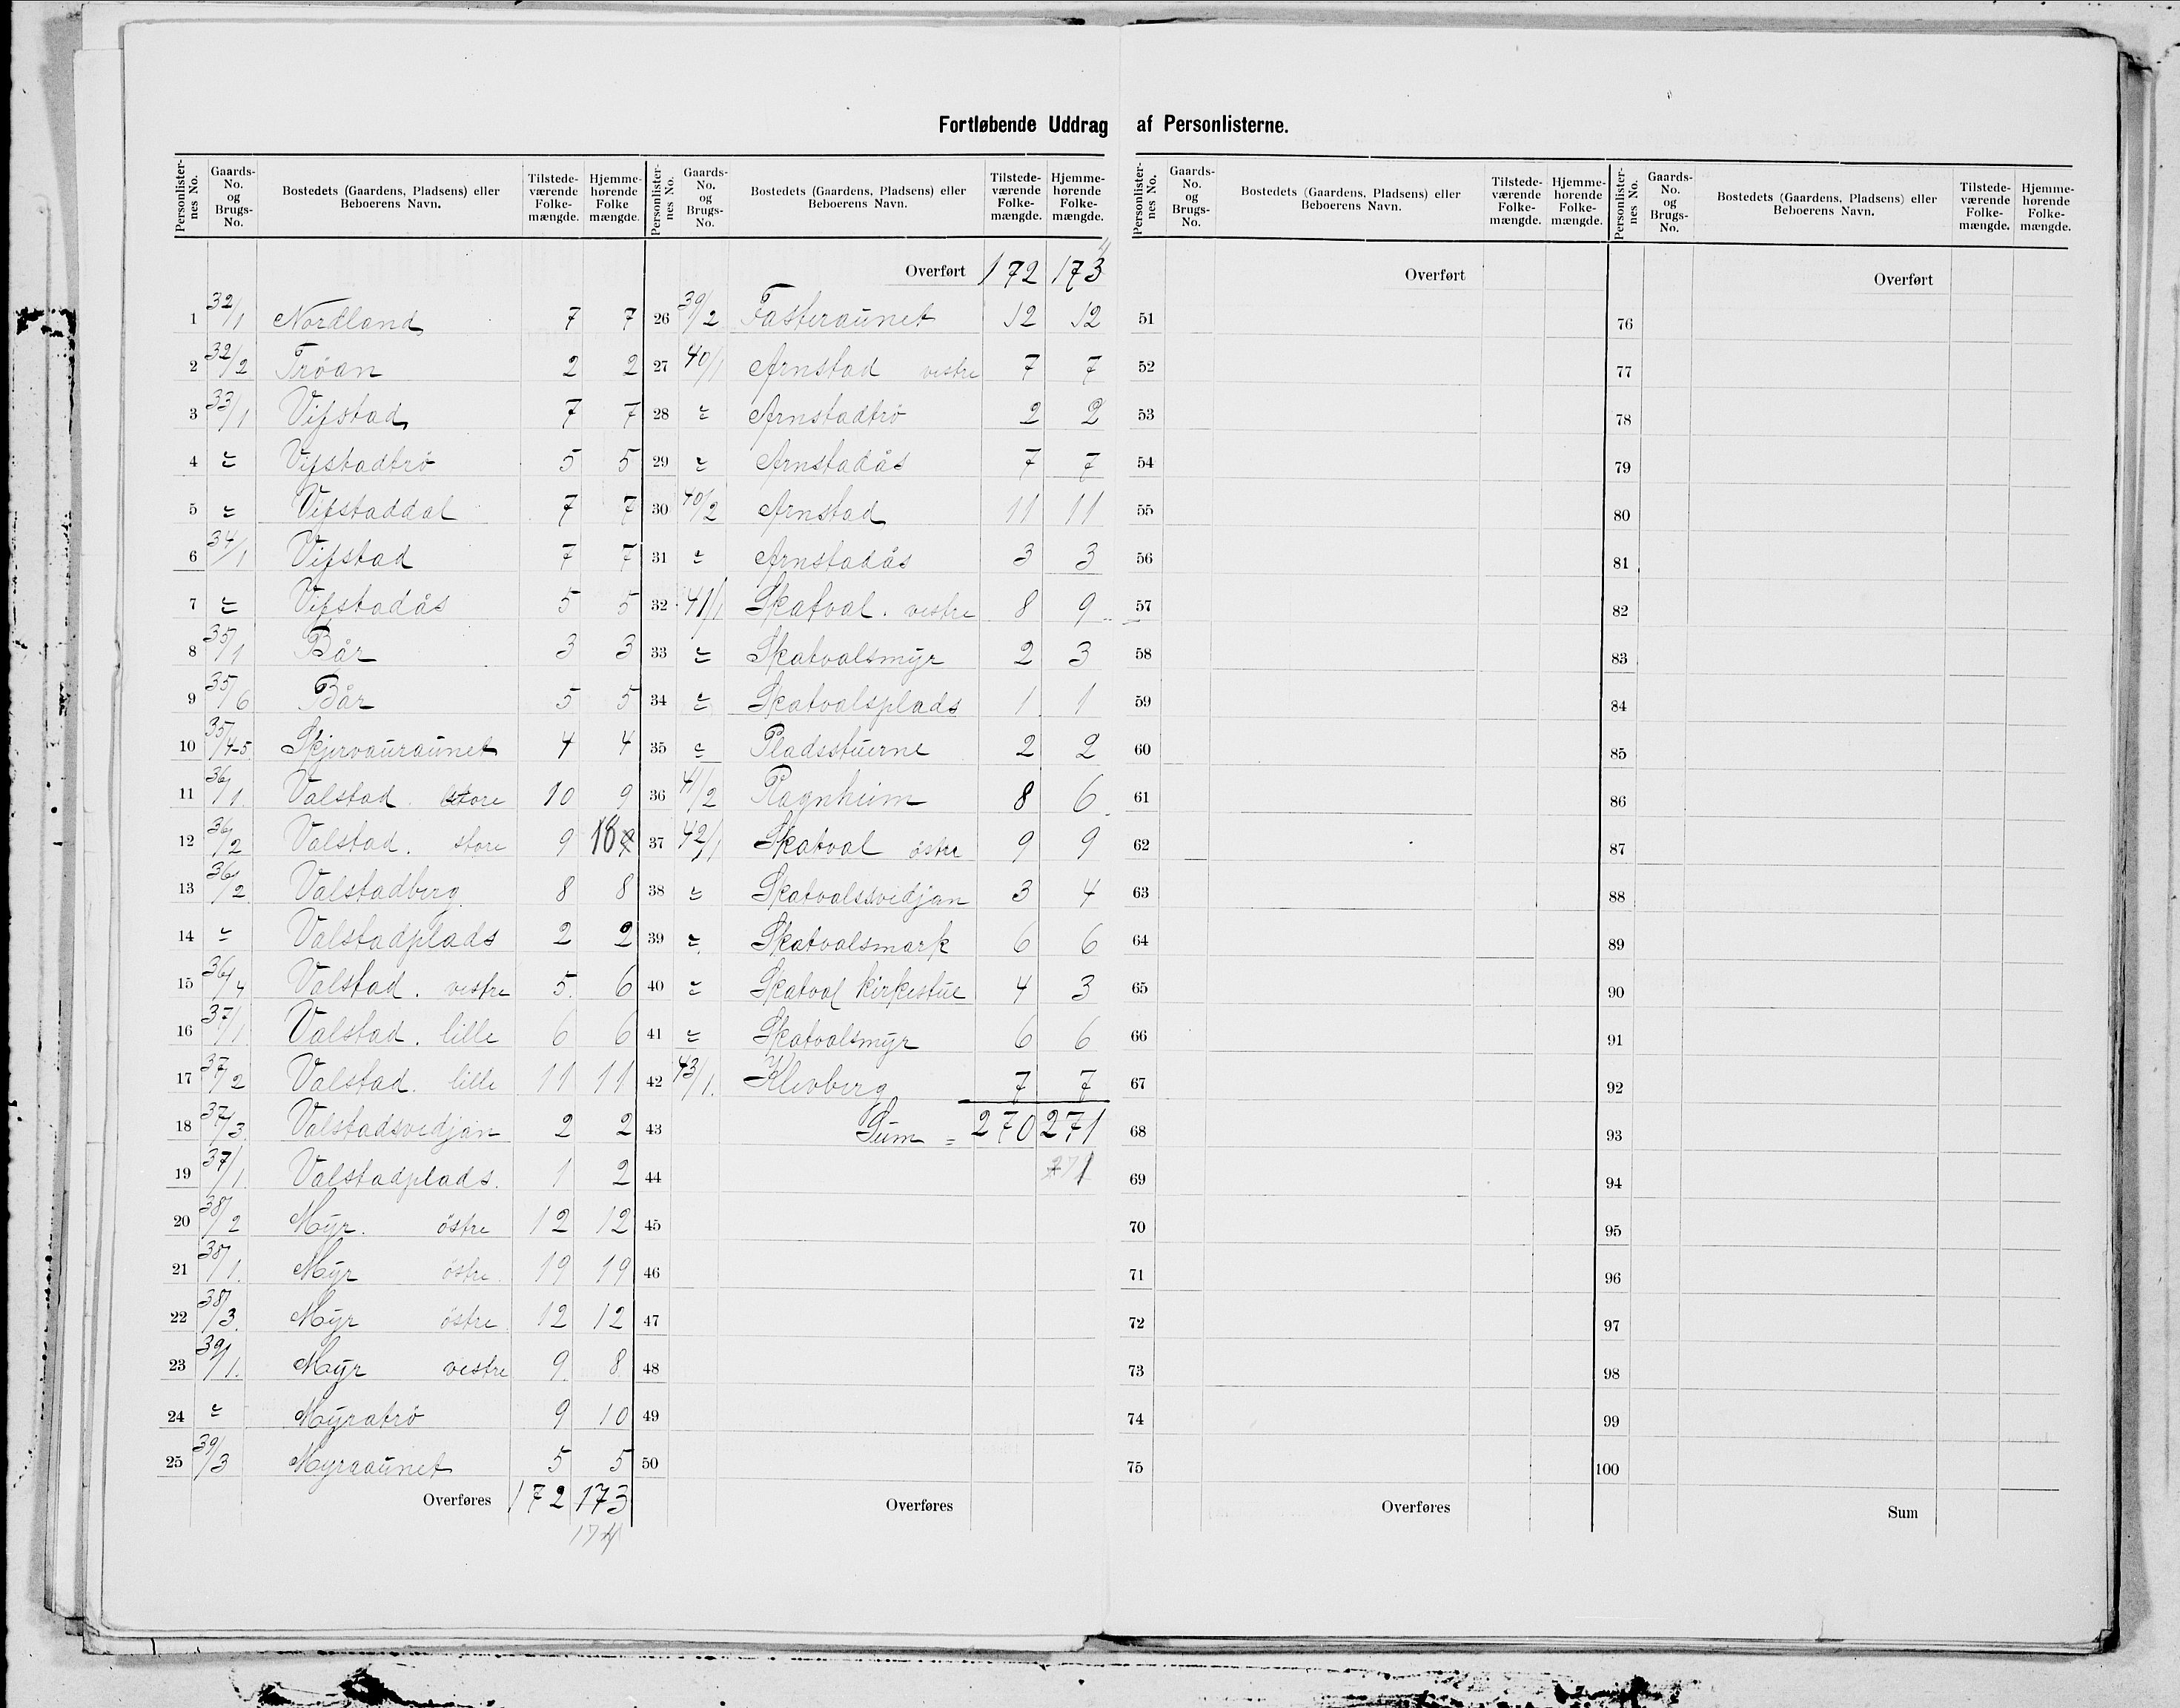 Fortløbende Uddrag af Personlisterne.
Personlister-nes No. Gaards-No. og Brugs-No. Bostedets (Gaardens, Pladsens) eller Beboerens Navn. Tilstede-værende Folke-mængde. Hjemme-hørende Folke mængde.
1 32/1 Nordland 7 7
2 32/2 Trøan 2 2
3 33/1 Vifstad 7 7
4 " Vifstadtrö 5 5
5 " Vifstaddal 7 7
6 34/1 Vifstad 7 7
7 " Vifstadås 5 5
8 35/1 Bår 3 3
9 35/6 Bår 5 5
10 35/4-5 Skjervauraunet 4 4
11 36/1. Valstad. store 10 9
12 36/2 Valstad. store 9 10
13 36/2 Valstadberg. 8 8
14 " Valstadplads 2 2
15 36/4 Valstad. vestre 5. 6
16 37/1 Valstad. lille 6 6
17 37/2 Valstad. lille 11 11
18 37/3. Valstadsvedjan 2 2
19 37/1. Valstadplads. 1 2
20 38/2 Myr. östre 12 12
21 38/1. Myr östre. 19 19
22 38/3. Myr östre. 12 12
23 39/1. Myr vestre 9. 8
24 " Myratrö 9 10
25 39/3 Myraaunet 5 5
Overføres 172 173
174
Personlister-nes No. Gaards-No. og Brugs-No. Bostedets (Gaardens, Pladsens) eller Beboerens Navn. Tilstede-værende Folke-mængde. Hjemme-hørende Folke-mængde.
Overført 172 173
26 39/2 Fasteraunet 12 12
27 40/1 Arnstad vestre 7 7
28 " Arnstadtrö 2 2
29 " Arnstadås 7 7
30 40/2 Arnstad 11 11
31 " Arnstadås 3 3
32 41/1 Skatval. vestre 8 9
33 " Skatvalsmyr 2 3
34 " Skatvalsplads 1 1
35 " Pladsstuerne 2 2
36 41/2 Ragnheim 8 6
37 42/1 Skatval östre 9 9
38 " Skatvalssvedjan 3 4
39 " Skatvalsmark 6 6
40 " Skatval kirkestue 4 3
41 " Skatvalsmyr 6 6
42 43/1. Klevberg 7 7
43 Sum = 270 271
44
45
46
47
48
49
50
Overføres
Personlister-nes No. Gaards-No. og Brugs-No. Bostedets (Gaardens, Pladsens) eller Beboerens Navn. Tilstede-værende Folke-mængde. Hjemme-hørende Folke-mængde.
Overført
51
52
53
54
55
56
57
58
59
60
61
62
63
64
65
66
67
68
69
70
71
72
73
74
75
Overføres
Personlister-nes No. Gaards-No. og Brugs-No. Bostedets (Gaardens, Pladsens) eller Beboerens Navn. Tilstede-værende Folke-mængde. Hjemme-hørende Folke-mængde.
Overført
76
77
78
79
80
81
82
83
84
85
86
87
88
89
90
91
92
93
94
95
96
97
98
99
100
Sum